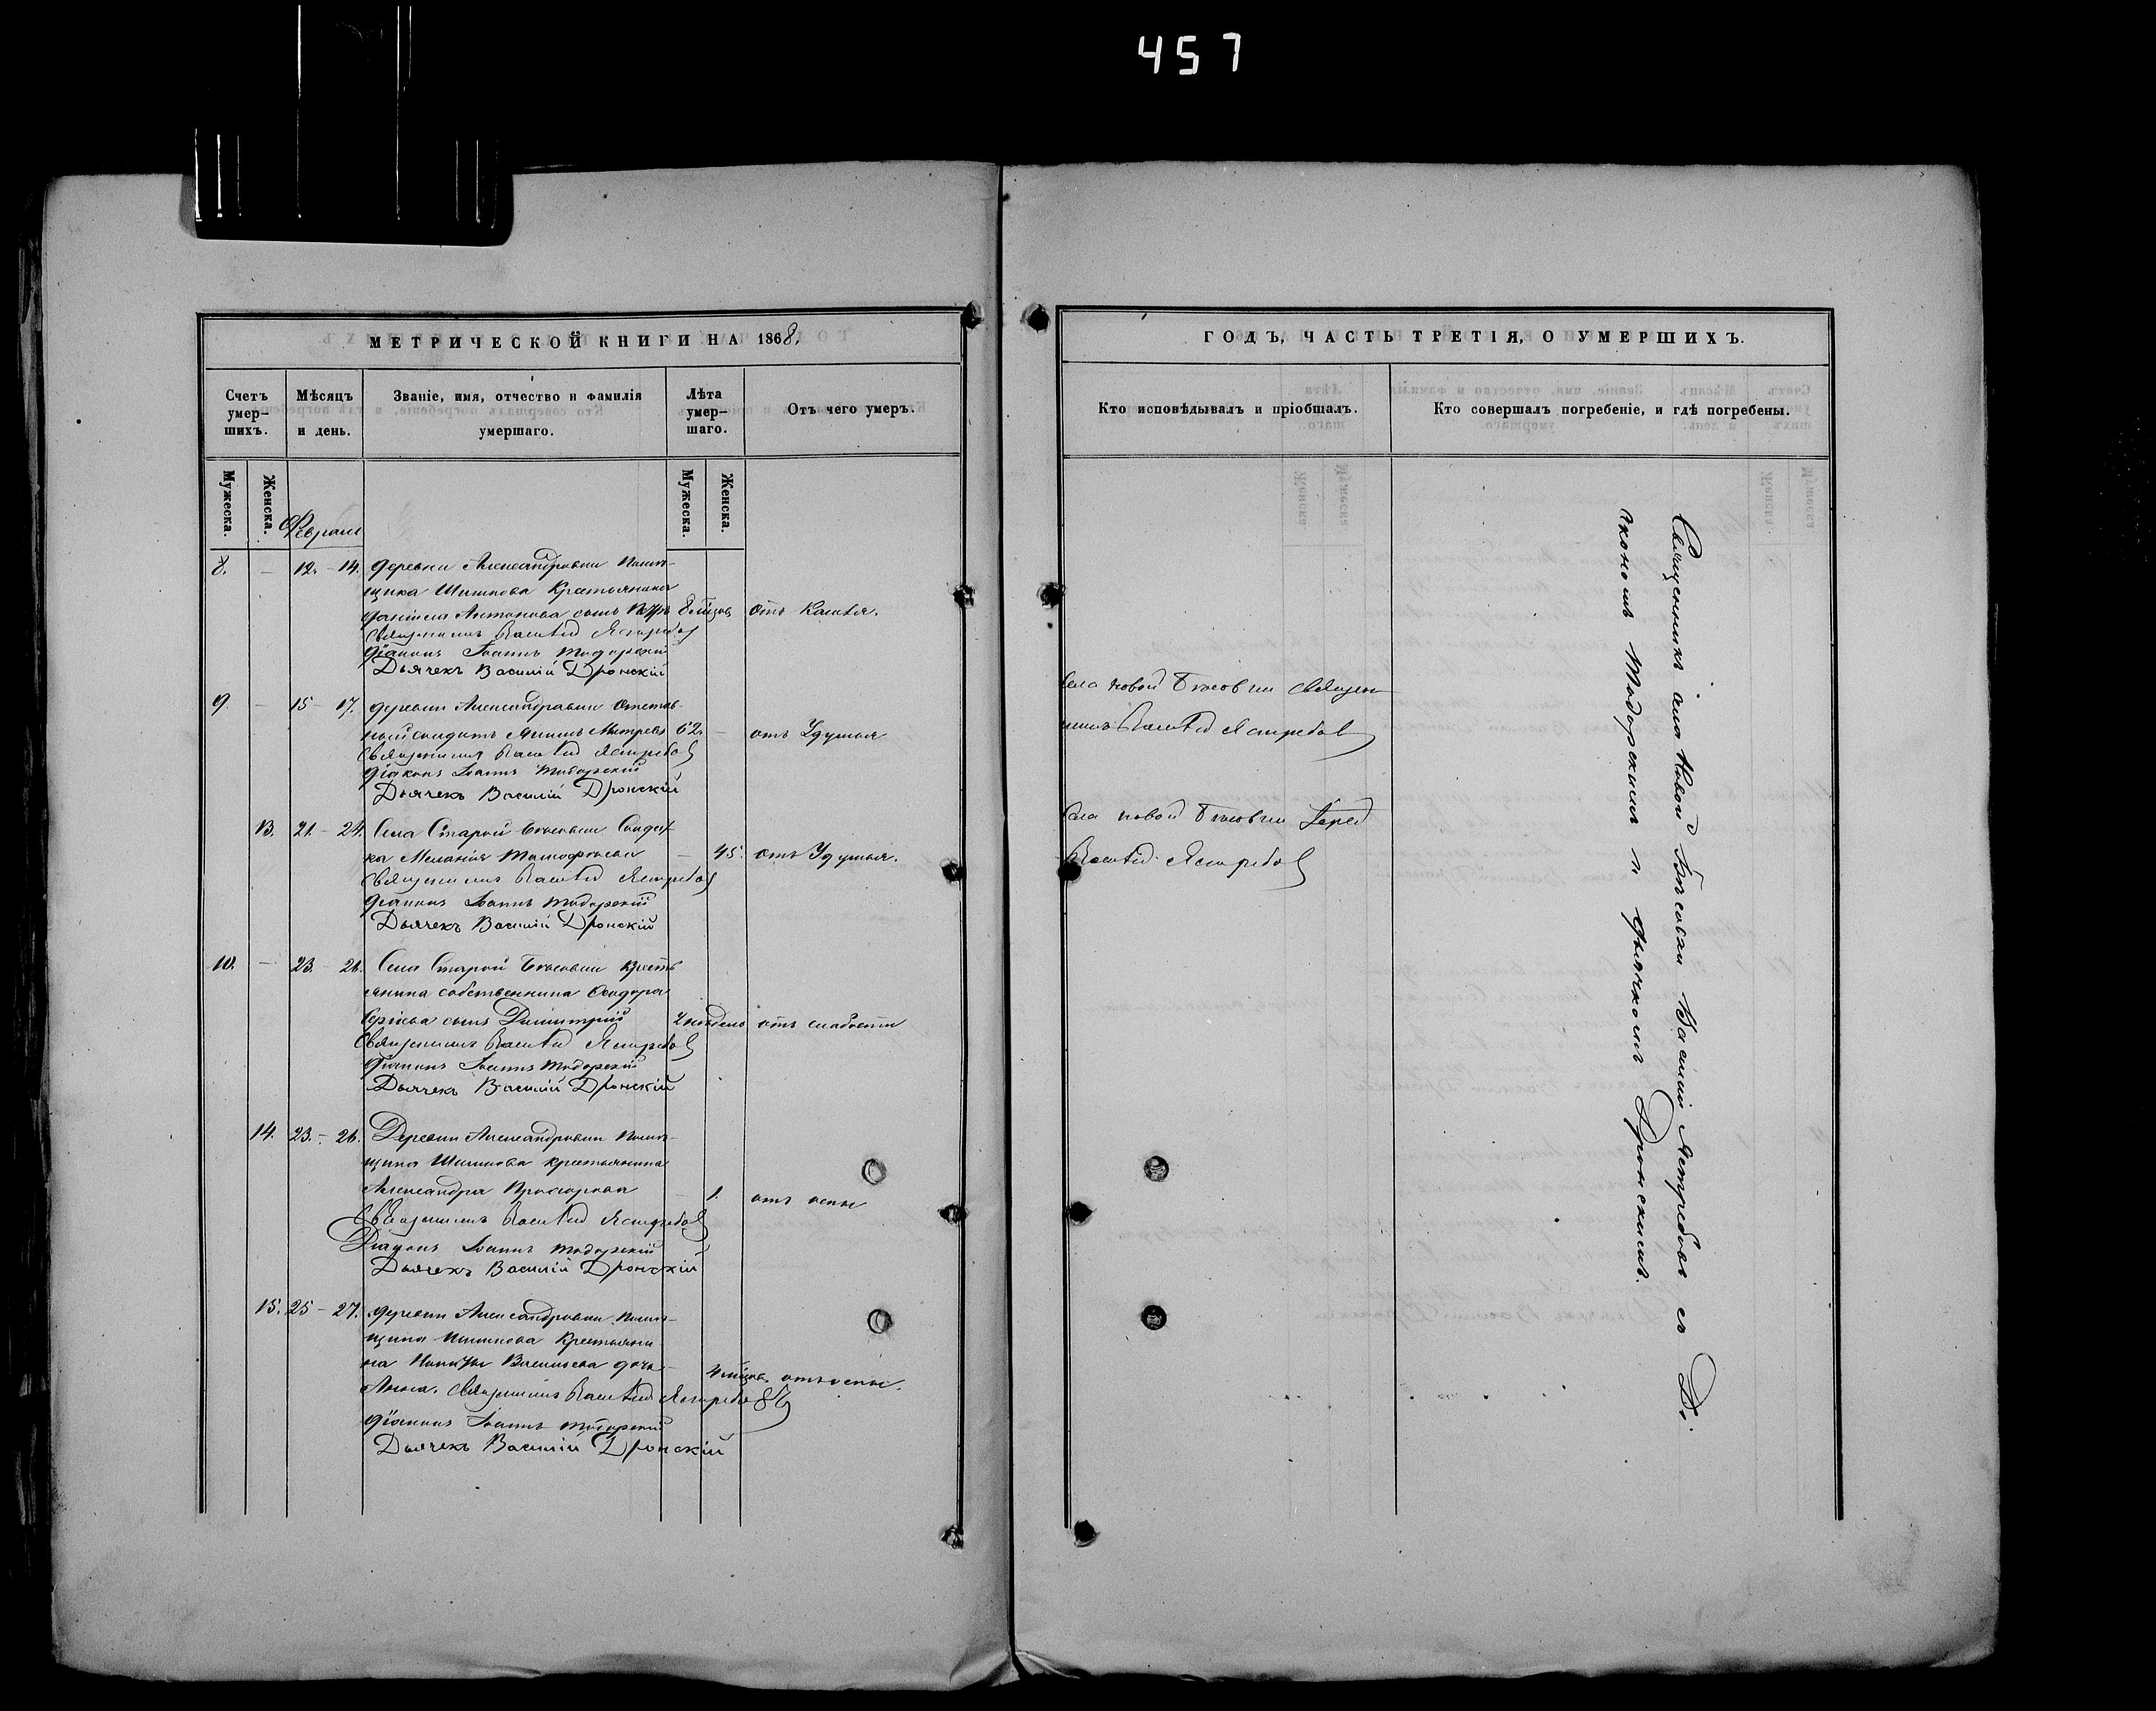 457
МЕТРИЧЕСКОЙ КНИГИ НА 1868.
Счетъ умер-шихъ.
Мѣсяцъ и день.
Званіе, имя, отчество и фамилія умершаго.
Лѣта умер-шаго.
Отъ чего умеръ.
Мужеска.
Женска.
Мужеска.
Женска.
Февраль
8. – 12. – 14. деревни Александровки помѣ-
щика Шишкова Крестьянина
Даніила Антонова сынъ Петръ 8 мѣсяц. отъ кашля.
Священникъ Василій Ястребовъ
Діаконъ Іоаннъ Тодорскій
Дьячекъ Василій Дронскій
9. – 15 – 17. деревни Александровки Отстав-
ной солдатъ 62. – отъ Удушья
Священникъ Василій Ястребовъ
Діаконъ Іоаннъ Тодорскій
Дьячекъ Василій Дронскій
13. 21. – 24. Села Старой Солдат-
ка Меланія – 45. отъ Удушья.
Священникъ Василій Ястребовъ
Діаконъ Іоаннъ Тодорскій
Дьячекъ Василій Дронскій
10. – 23. – 26. Села Старой Кресть
янина собственника
сынъ Димитрій 2 недѣль отъ слабости
Священникъ Василій Ястребовъ
Діаконъ Іоаннъ Тодорскій
Дьячекъ Василій Дронскій
14. 23. – 26. Деревни Александровки помѣ-
щика Шишкова крестьянина
Александра Прохорова – 1. отъ оспы
Священникъ Василій Ястребовъ
Діаконъ Іоаннъ Тодорскій
Дьячекъ Василій Дронскій
15. 25 – 27. деревни Александровки помѣ-
щика Шишкова Крестьяни-
на Васильева дочь
Анна. Священникъ Василій Ястребовъ 4 мѣсяц. отъ оспы.
Діаконъ Іоаннъ Тодорскій
Дьячекъ Василій Дронскій
ГОДЪ, ЧАСТЬ ТРЕТІЯ, О УМЕРШИХЪ.
Кто исповѣдывалъ и пріобщалъ.
Кто совершалъ погребеніе, и гдѣ погребены.
Села новой священ
никъ Василій Ястребовъ
Села новой Іерей
Василій Ястребовъ
Священникъ села Новой Василій Ястребовъ съ Ді-
акономъ Тодорскимъ и дьячкомъ Дронскимъ.